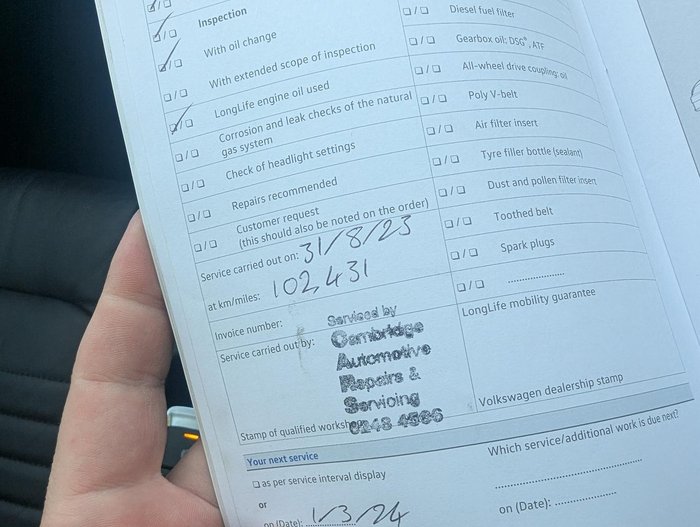 ☐/☐
☐/☐ Inspection
☐/☐ With oil change
☐/☐ With extended scope of inspection
☐/☐ LongLife engine oil used
☐/☐ Corrosion and leak checks of the natural
gas system
☐/☐ Check of headlight settings
☐/☐ Repairs recommended
☐/☐ Customer request
(this should also be noted on the order)
Service carried out on: 31/8/23
at km/miles: 102,431
Invoice number:
Service carried out by:
Serviced by
Cambridge
Automotive
Repairs &
Servicing
Stamp of qualified workshop
☐/☐ Diesel fuel filter
☐/☐ Gearbox oil: DSG®, ATF
☐/☐ All-wheel drive coupling: oil
☐/☐ Poly V-belt
☐/☐ Air filter insert
☐/☐ Tyre filler bottle (sealant)
☐/☐ Dust and pollen filter insert
☐/☐ Toothed belt
☐/☐ Spark plugs
☐/☐ ....................
LongLife mobility guarantee
Volkswagen dealership stamp
Your next service
☐ as per service interval display
or
on (Date): 1/3/24
Which service/additional work is due next?
on (Date): ....................